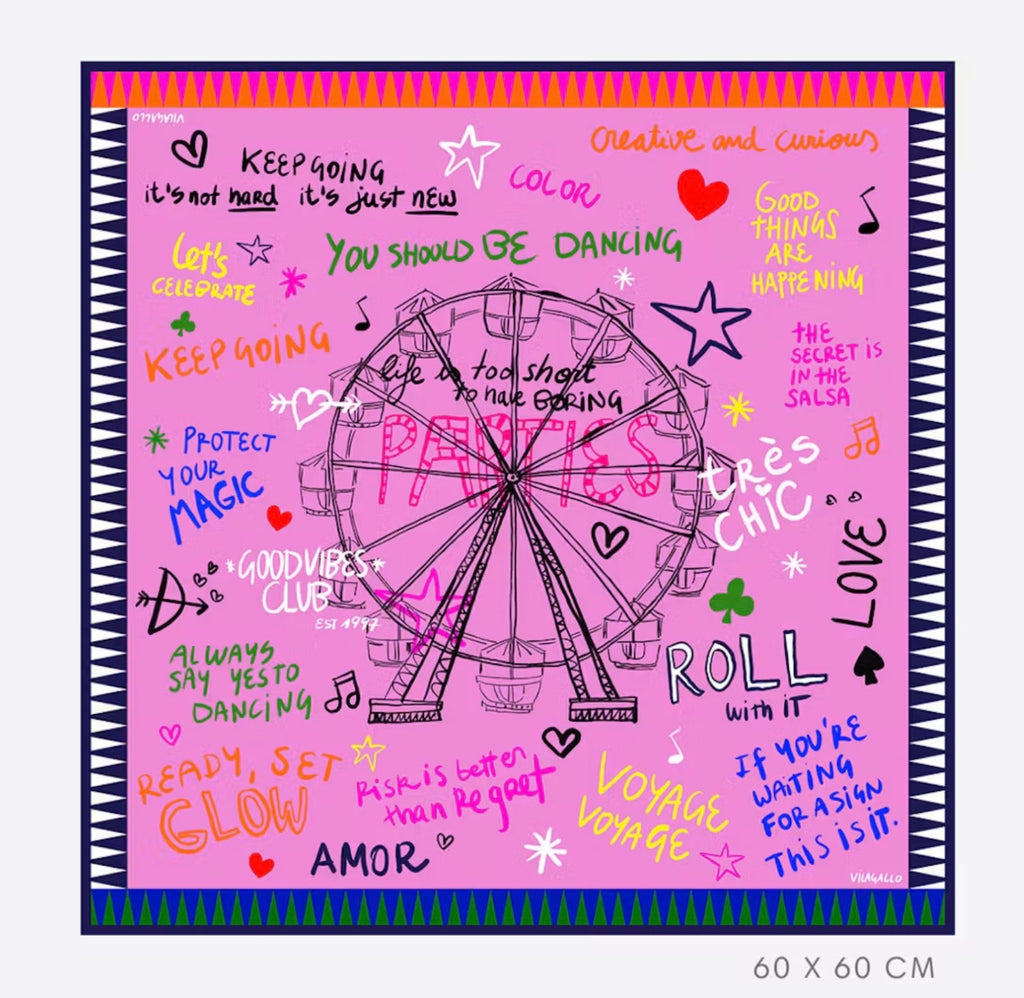 VILAGALLO
KEEP GOING
it's not hard it's just new
COLOR
Creative and curious
GOOD
THINGS
ARE
HAPPENING
Let's
CELEBRATE
YOU SHOULD BE DANCING
KEEP GOING
THE
SECRET IS
IN THE
SALSA
life is too short
to have BORING
PARTIES
PROTECT
YOUR
MAGIC
très
CHIC
LOVE
*GOODVIBES*
CLUB
EST 1997
ALWAYS
SAY YES TO
DANCING
ROLL
with IT
READY, SET
GLOW
Risk is better
than Regret
VOYAGE
VOYAGE
If YOU'RE
WAITING
FOR A SIGN
THIS IS IT.
AMOR
VILAGALLO
60 X 60 CM